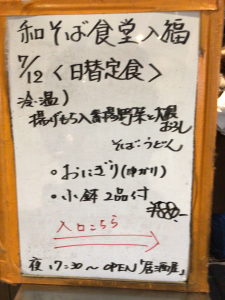 和そば食堂入福
7/12 <日替定食>
冷・温)
揚げもち入 夏野菜と大根おろし
そば・うどん
・おにぎり(ゆかり)
・小鉢2品付
入口こちら
夜 17:30～ OPEN「居酒屋」